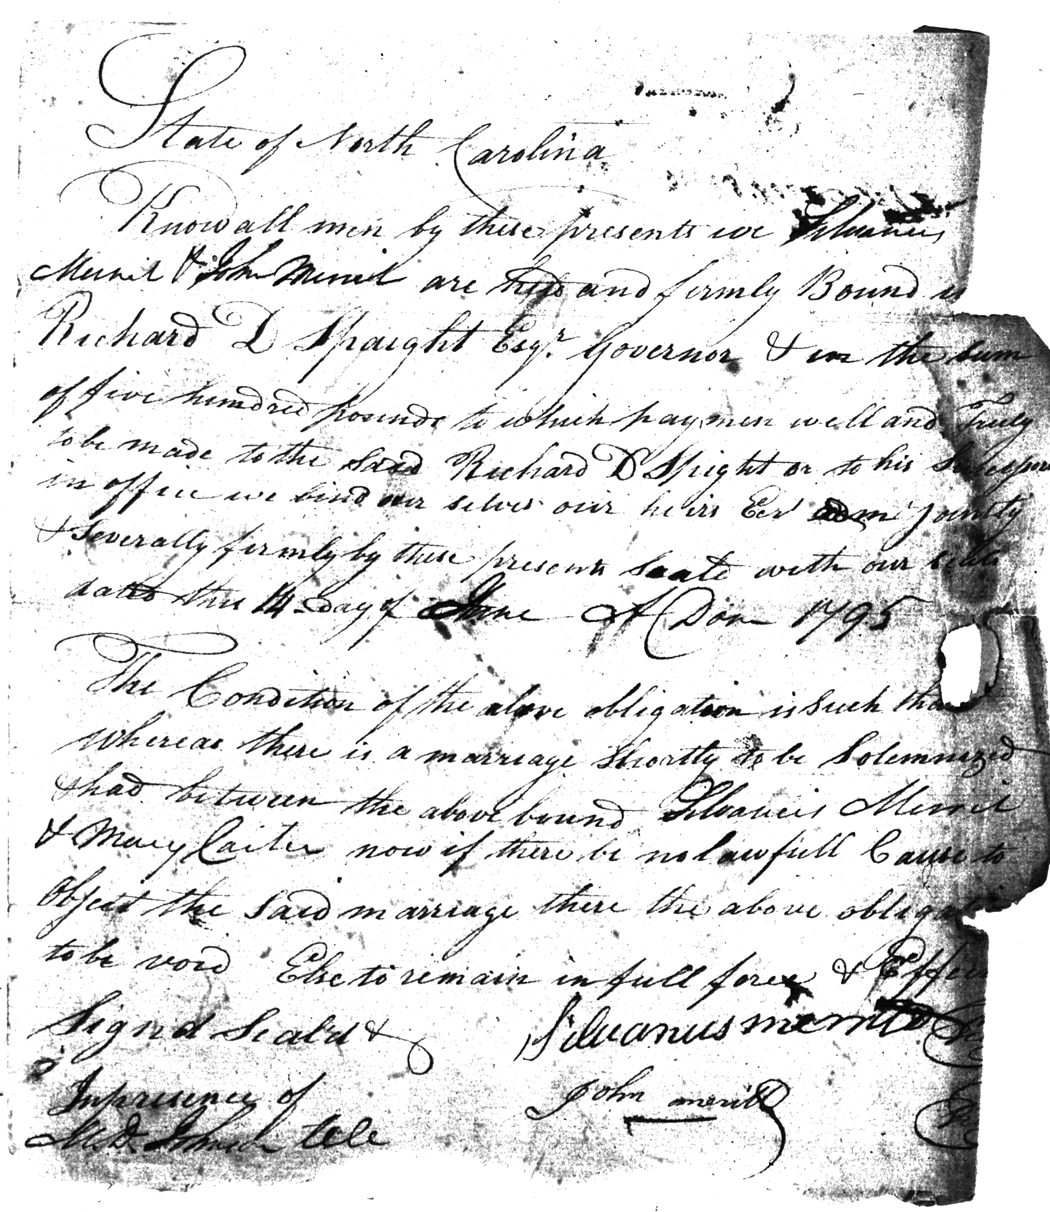 State of North Carolina
Know all men by these presents we Silvanus
Merrit & John Merrit are held and firmly Bound
Richard D Spaight Esqr. Governor & in the Sum
of five hundred pounds to which paymen well and Truly
to be made to the Said Richard D Spight or to his
in office we bind our selves our heirs Eer adm jointly
& Severally firmly by these presents Seale with our Seals
dated this 14 day of June A Dom 1795
The Condition of the above obligation is Such tha
whereas there is a marriage Shortly to be Solemnized
& had between the above bound Silvanus Merrit
& Mary Carter now if there be no lawfull Cause to
Object the Said marriage there the above obligati
to be void Else to remain in full force & Effect
Signd Seal'd & Silvanus merritt
In presence of John merritt